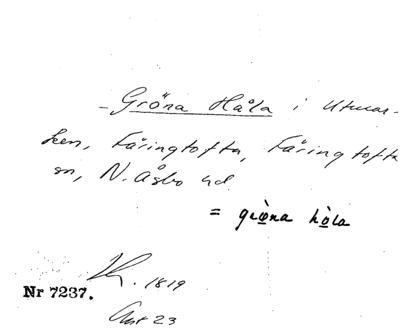 - Gröna Håla i Utmar-
ken, Färingtofta, Färingtofta
sn, N. Åsbo hd.
= grö̀na hò̀la
1819
Nr 7237.
23